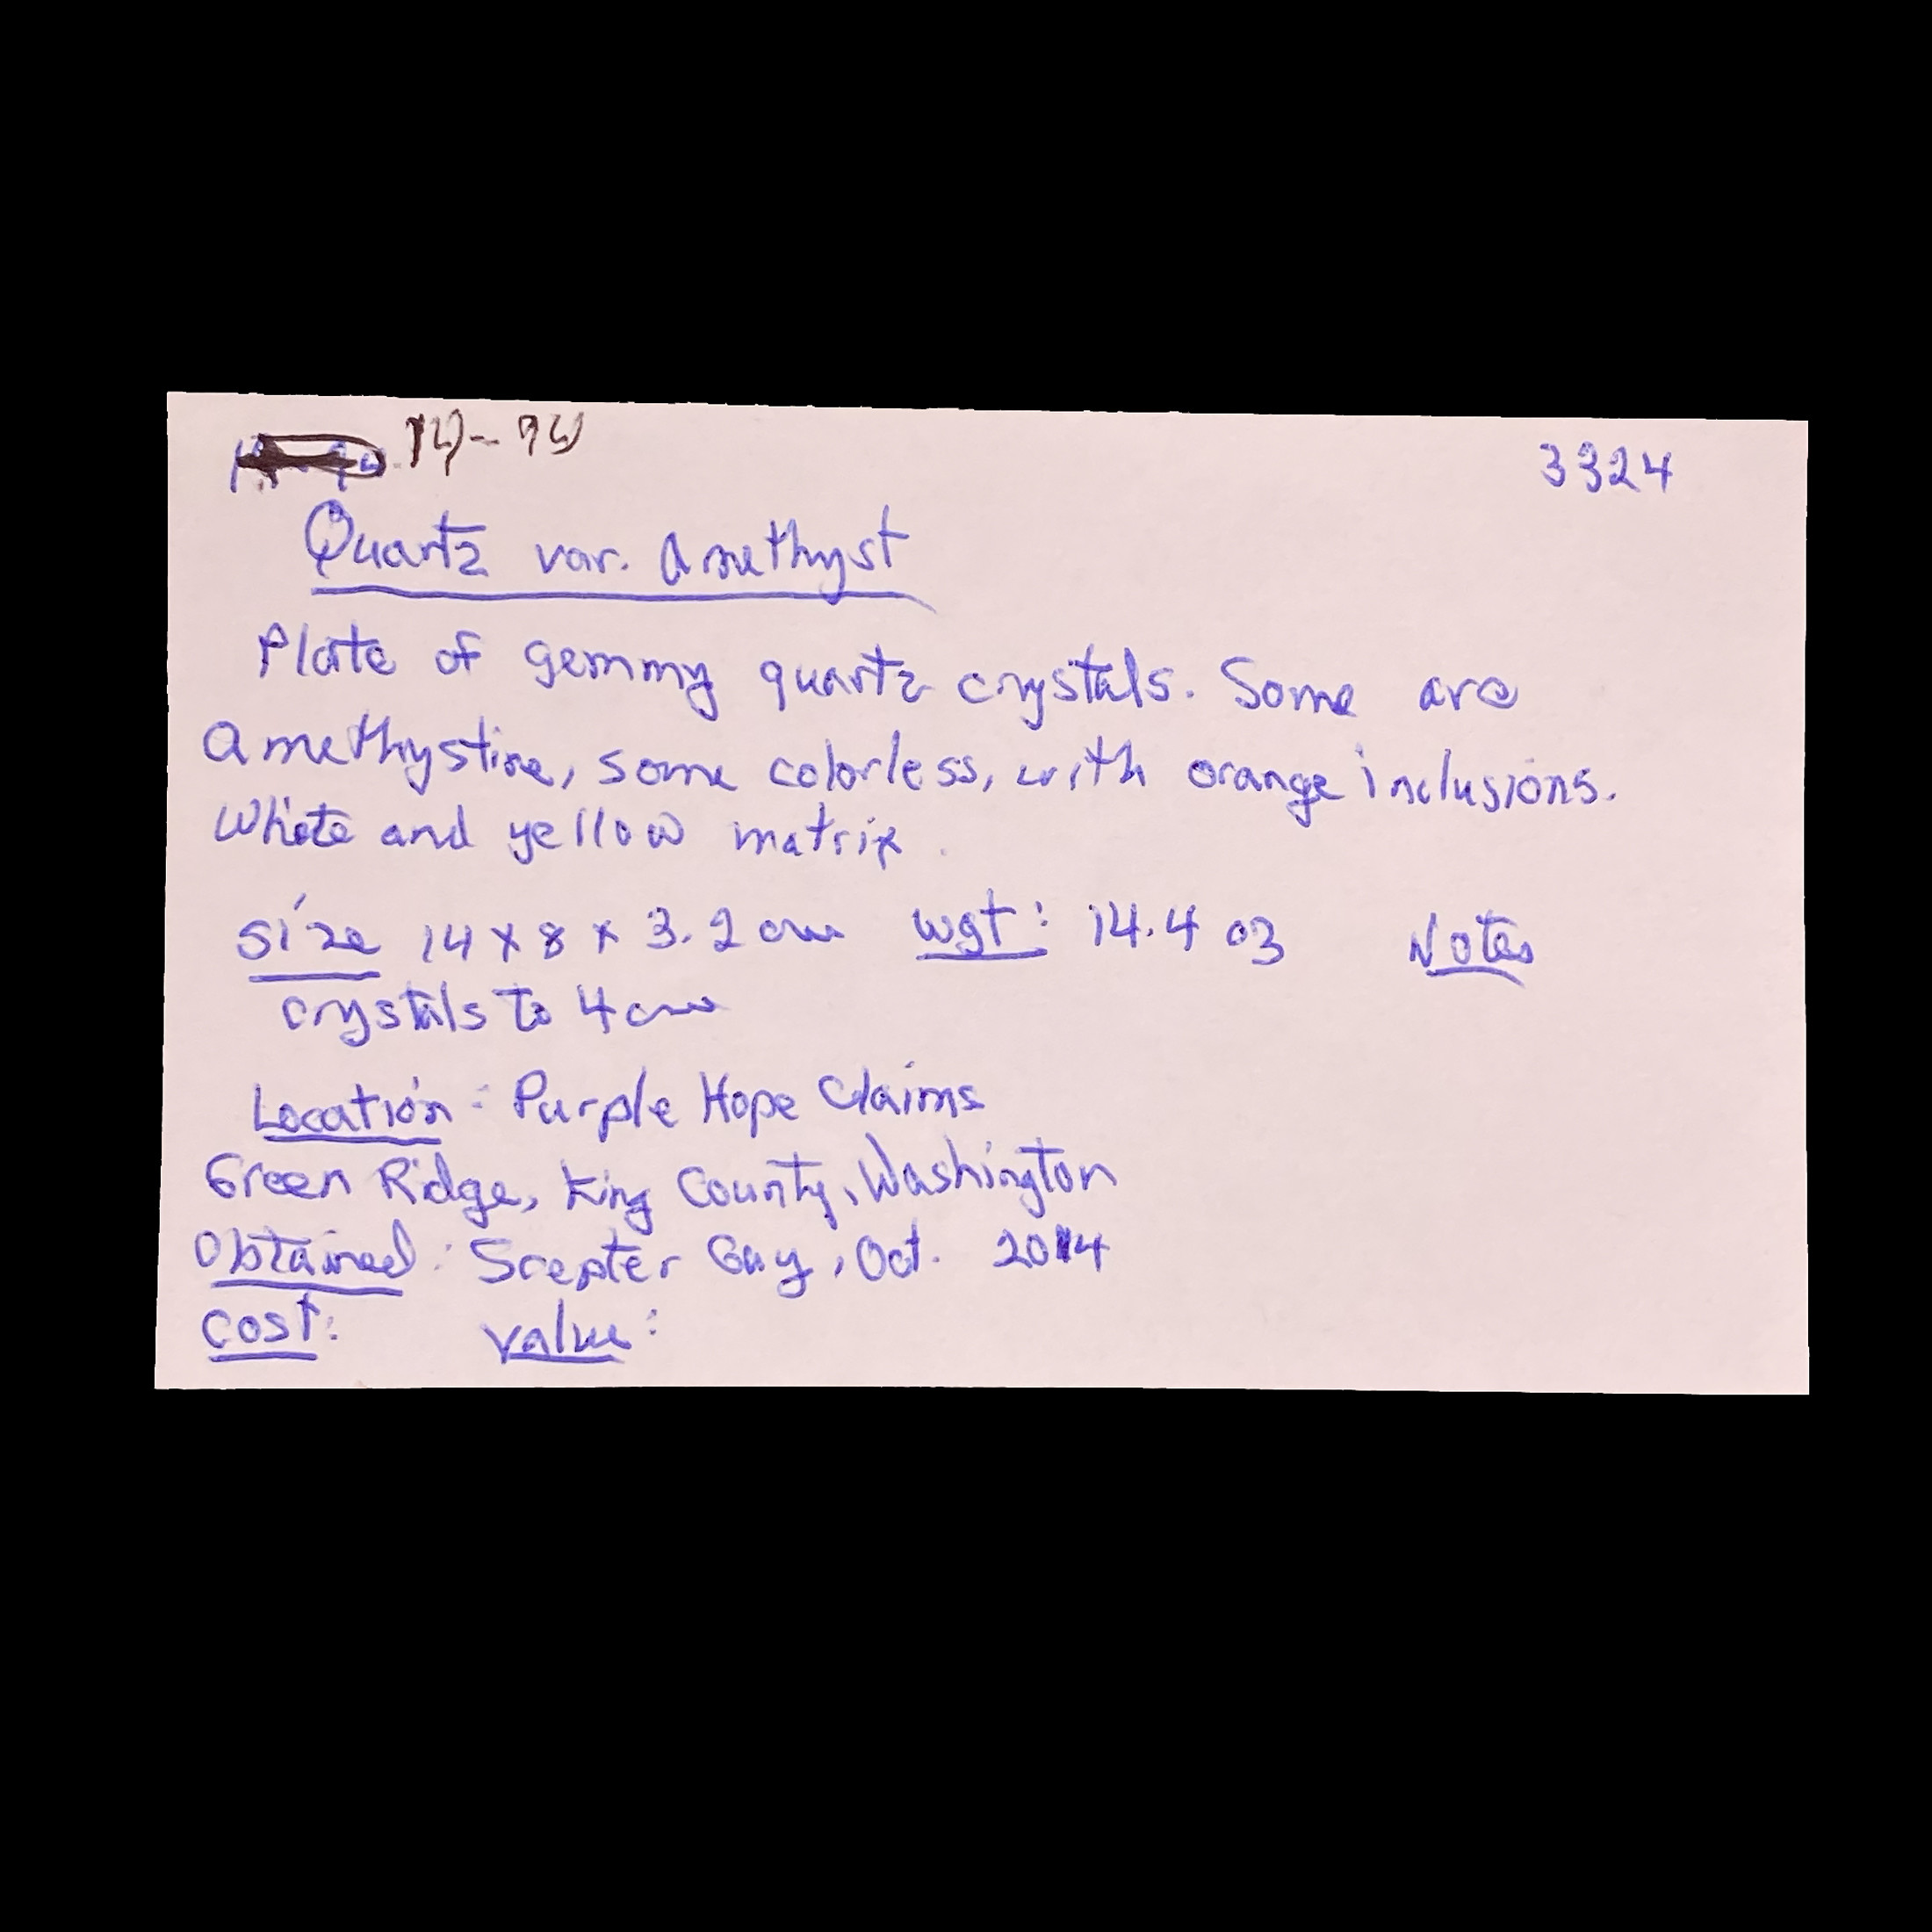 14-94 3324
Quartz var. Amethyst
Plate of gemmy quartz crystals. Some are
Amethystine, some colorless, with orange inclusions.
White and yellow matrix.
Size 14 x 8 x 3.2 cm wgt: 14.4 oz Notes
crystals to 4 cm
Location: Purple Hope Claims
Green Ridge, King County, Washington
Obtained: Scepter Guy, Oct. 2014
Cost: Value: